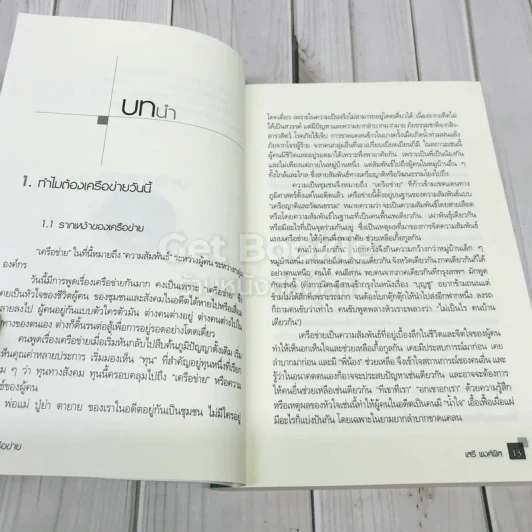 บทนำ
1. ทำไมต้องเครือข่ายวันนี้
1.1 รากเหง้าของเครือข่าย
"เครือข่าย" ในที่นี้หมายถึง "ความสัมพันธ์" ระหว่างผู้คน ระหว่าง
องค์กร
วันนี้มีการพูดเรื่องเครือข่ายกันมาก คงเป็นเพราะ เครือข่าย
เคยเป็นหัวใจของชีวิตผู้คน ของชุมชนและสังคมในอดีตได้หายไปหรือเสื่อม
สลายลงไป ผู้คนอยู่กันแบบตัวใครตัวมัน ต่างคนต่างอยู่ ต่างคนต่างไป
ทางของตนเอง ต่างก็ดิ้นรนต่อสู้เพื่อการอยู่รอดอย่างโดดเดี่ยว
คนพูดเรื่องเครือข่ายเมื่อเริ่มหันกลับไปสืบค้นภูมิปัญญาดั้งเดิม เริ่ม
เห็นคุณค่าหลายประการ เริ่มมองเห็น "ทุน" ที่สำคัญอยู่ทุนหนึ่งที่เรียก
ๆ ว่า ทุนทางสังคม ทุนนี้ครอบคลุมไปถึง "เครือข่าย" หรือความ
ของผู้คน
พ่อแม่ ปู่ย่า ตายาย ของเราในอดีตอยู่กันเป็นชุมชน ไม่มีใครอยู่
โดดเดี่ยว เพราะในความเป็นจริงไม่สามารถอยู่โดดเดี่ยวได้ เนื่องจากอดีตไม่
ได้เป็นสวรรค์ แต่มีปัญหาและความยากลำบากมากมาย ภัยธรรมชาติจาก
โรคภัยไข้เจ็บ การขาดแคลนข้าวในบางครั้งเมื่อเกิดน้ำท่วมฝนแล้ง
ภัยจากโจรผู้ร้าย จากคนกลุ่มอื่นที่เอาเปรียบเบียดเบียนก็มี ในสภาวะเช่นนี้
ผู้คนมีชีวิตและอยู่รอดมาได้เพราะพึ่งพาอาศัยกัน เพราะเป็นพี่เป็นน้องกัน
และไม่เพียงแต่ภายในหมู่บ้านเดียวกัน แต่สัมพันธ์ไปถึงคนในหมู่บ้านอื่น ๆ
ทั้งใกล้และไกล ซึ่งสายสัมพันธ์ทางเครือญาติหรือทางวัฒนธรรมโยงใยไปถึง
ความเป็นชุมชนจึงหมายถึง "เครือข่าย" ที่ก้าวข้ามเขตแดนทาง
ภูมิศาสตร์ตั้งแต่ในอดีต เป็นความสัมพันธ์ที่อยู่บนฐานของความสัมพันธ์แบบ
"เครือญาติและวัฒนธรรม" หมายความว่า จะเป็นความสัมพันธ์โดยสายเลือด
หรือโดยความสัมพันธ์ฐานที่เป็นคนพื้นเพเดียวกัน เผ่าพันธุ์เดียวกัน
หรือมีอะไรที่เป็นจุดร่วมกันอยู่ ซึ่งเป็นเหตุผลทางการสร้างความสัมพันธ์แบบ
เครือข่ายร่วมกัน ให้ผู้คนพึ่งพาอาศัย ช่วยเหลือเกื้อกูลกัน
"คนบ้านเดียวกัน" บอกครั้งจึงกินความกว้างกว่าหมู่บ้านเล็ก ๆ
อาจหมายถึงคนอำเภอเดียวกัน จังหวัดเดียวกัน ภาคเดียวกันก็ได้
อย่างคนเหนือ คนใต้ คนอีสาน พบคนจากภาคเดียวกันที่กรุงเทพฯ มักพูด
ไม่ได้ใส่ใจเพราะรถมาก จนต้องโบกตุ๊กตุ๊กให้นำไปส่งอีกฟากหนึ่ง ลงรถ
ก็ถามคนขับว่าเท่าไร คนขับพูดพลางหัวเราะพลางว่า "ไม่เป็นไร คนบ้าน
เดียวกัน")
เครือข่ายเป็นความสัมพันธ์ที่อยู่เบื้องลึกในชีวิตและจิตใจของผู้คน
ทำให้เห็นอกเห็นใจและช่วยเหลือเกื้อกูลกัน เมื่อมีประสบการณ์มาก่อน เคย
ลำบากมาก่อน และมี "พี่น้อง" ช่วยเหลือ จึงเข้าใจสถานการณ์ของคนอื่น และ
รู้ว่าในอนาคตตนเองก็อาจจะประสบปัญหาเช่นเดียวกัน และอาจจะต้องการ
ให้คนอื่นช่วยเหลือเช่นเดียวกัน "ทีเขาทีเรา" "อกเขาอกเรา" ด้วยความรู้สึก
หรือเหตุผลของหัวใจเช่นนี้ทำให้ผู้คนในอดีตเป็นคนมี "น้ำใจ" เอื้อเฟื้อเผื่อแผ่
มีอะไรก็แบ่งปันกัน โดยเฉพาะในยามยากลำบากขาดแคลน
เสรี พงศ์พิศ 13